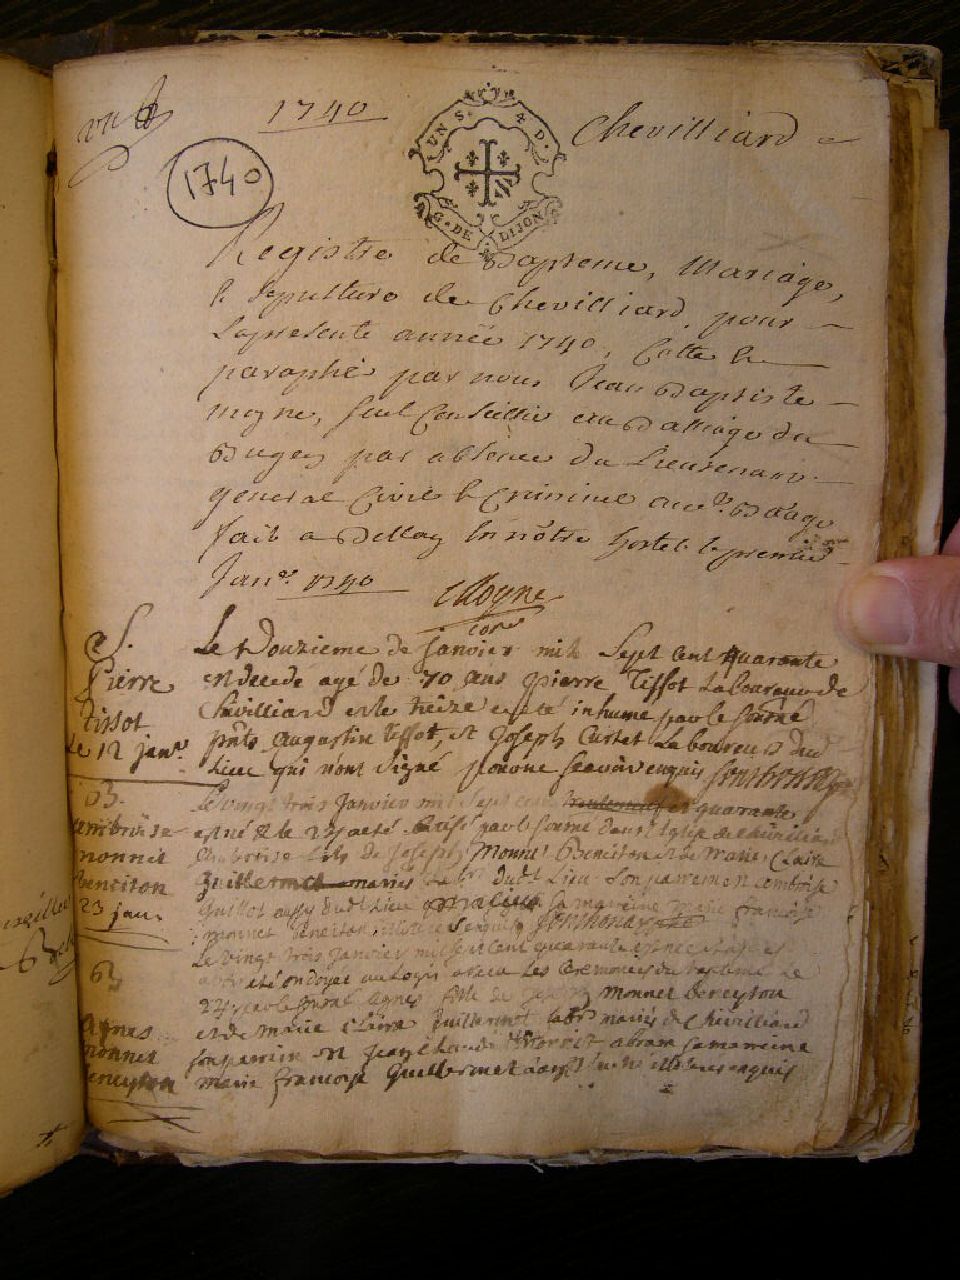 1740
Chevilliard
1740
UN S. 4 D.
G. DE DIJON
Registre de Bapteme, Mariage,
& Sepulture de Chevilliard, pour
la presente année 1740, Cotte &
paraphé par nous Jean Baptiste
moyne, seul Conseillier au Balliage du
Bugey par absence du Lieutenant
general Civil & Criminel audt. Balliage
fait a Bellay en nôtre hostel le premier
Janer. 1740 Moyne
conser
S.
Pierre
Tissot
le 12 janr.
Le Douzieme de Janvier mil Sept Cent quarante
est decedé agé de 70 ans pierre Tissot Laboureur de
Chevilliard et le treize a esté inhumé par le soussigné
pnts Augustin tissot, et Joseph Curtet Laboureurs dud
Lieu qui n'ont signé pour ne scavoir enquis
B.
ambroise
monnet
beneiton
23 janr.
Le vingt trois Janvier mil Sept cent et quarante
est né & le 23 a eté Batisé par le soussigné dans l'Eglise de Chevilliard
Ambroise fils de Joseph Monnet Beneiton et de Marie Claire
Guillermet mariés dudt. Lieu Son parrein est ambroise
Guillot aussy dudt Lieu sa mareine Marie francoise
monnet beneiton, enquis
B
Agnes
monnet
beneyton
Le vingt trois Janvier mil sept cent quarante est née et a
esté ondoyé au Logis et receu Les Ceremonies du bapteme Le
24 par le soussigné agnes fille de Joseph Monnet beneyton
et de Marie Claire Guillermet mariés de Chevilliard
son parrein est Jean Claude Monnet abram sa mareine
Marie francoise Guillermet enquis